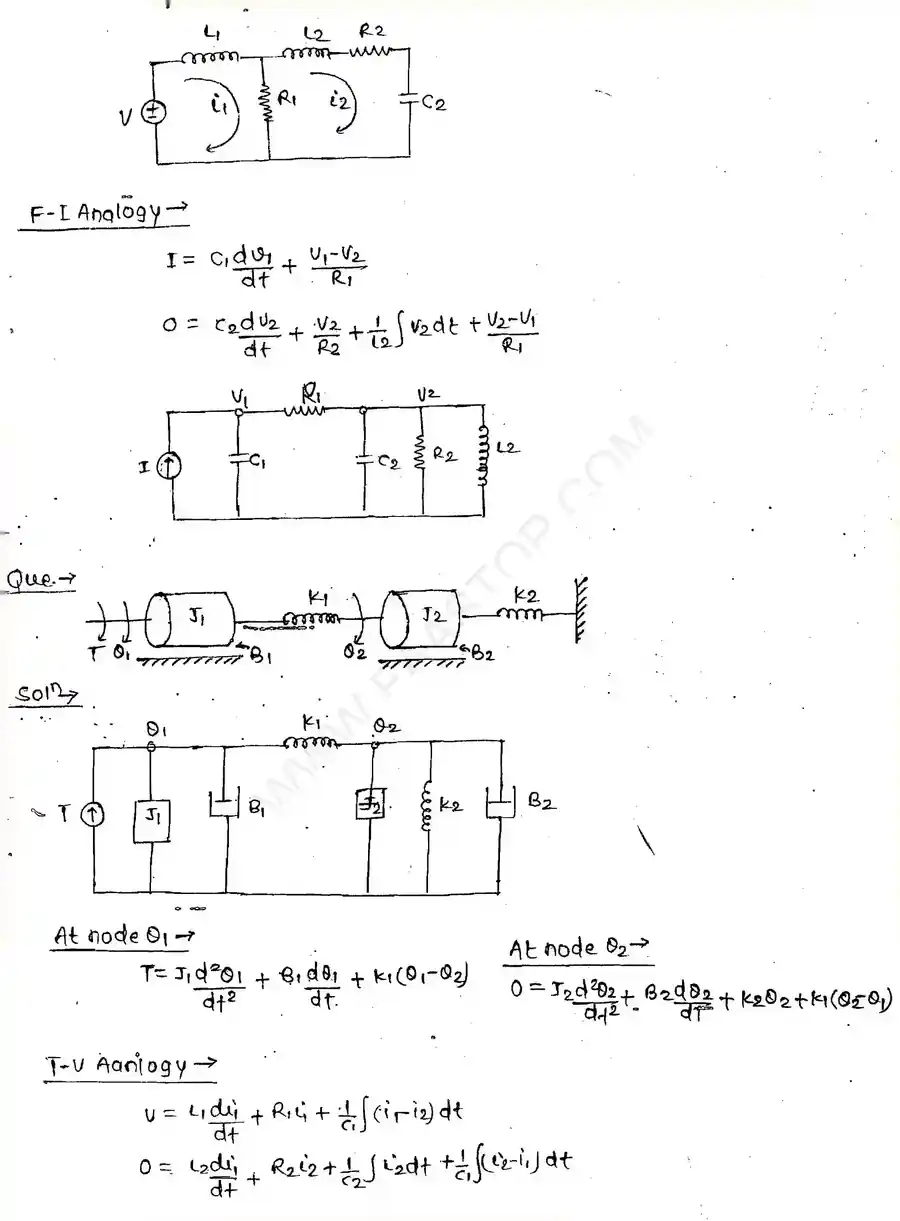 L1 L2 R2
V i1 R1 i2 C2
F-I Analogy →
I = C1 dv1/dt + (V1-V2)/R1
0 = C2 dv2/dt + V2/R2 + 1/L2 ∫ v2 dt + (V2-V1)/R1
V1 R1 V2
I C1 C2 R2 L2
Que. →
T θ1 J1 B1 K1 θ2 J2 B2 K2
Soln →
θ1 K1 θ2
T J1 B1 J2 K2 B2
At node θ1 →
T = J1 d²θ1/dt² + B1 dθ1/dt + K1(θ1-θ2)
At node θ2 →
0 = J2 d²θ2/dt² + B2 dθ2/dT + K2θ2 + K1(θ2-θ1)
T-V Aanlogy →
V = L1 di1/dt + R1i1 + 1/C1 ∫(i1-i2) dt
0 = L2 di1/dt + R2i2 + 1/C2 ∫ i2 dt + 1/C1 ∫(i2-i1) dt